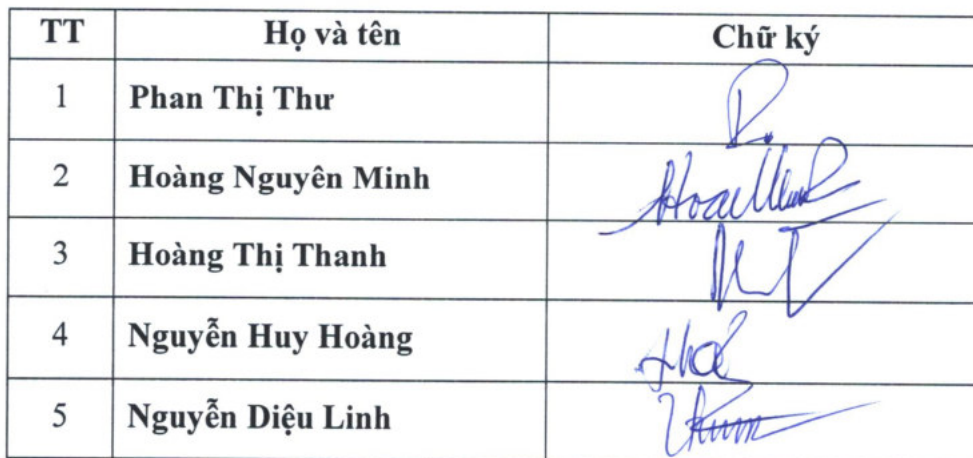 TT Họ và tên Chữ ký
1 Phan Thị Thư
2 Hoàng Nguyên Minh
3 Hoàng Thị Thanh
4 Nguyễn Huy Hoàng
5 Nguyễn Diệu Linh